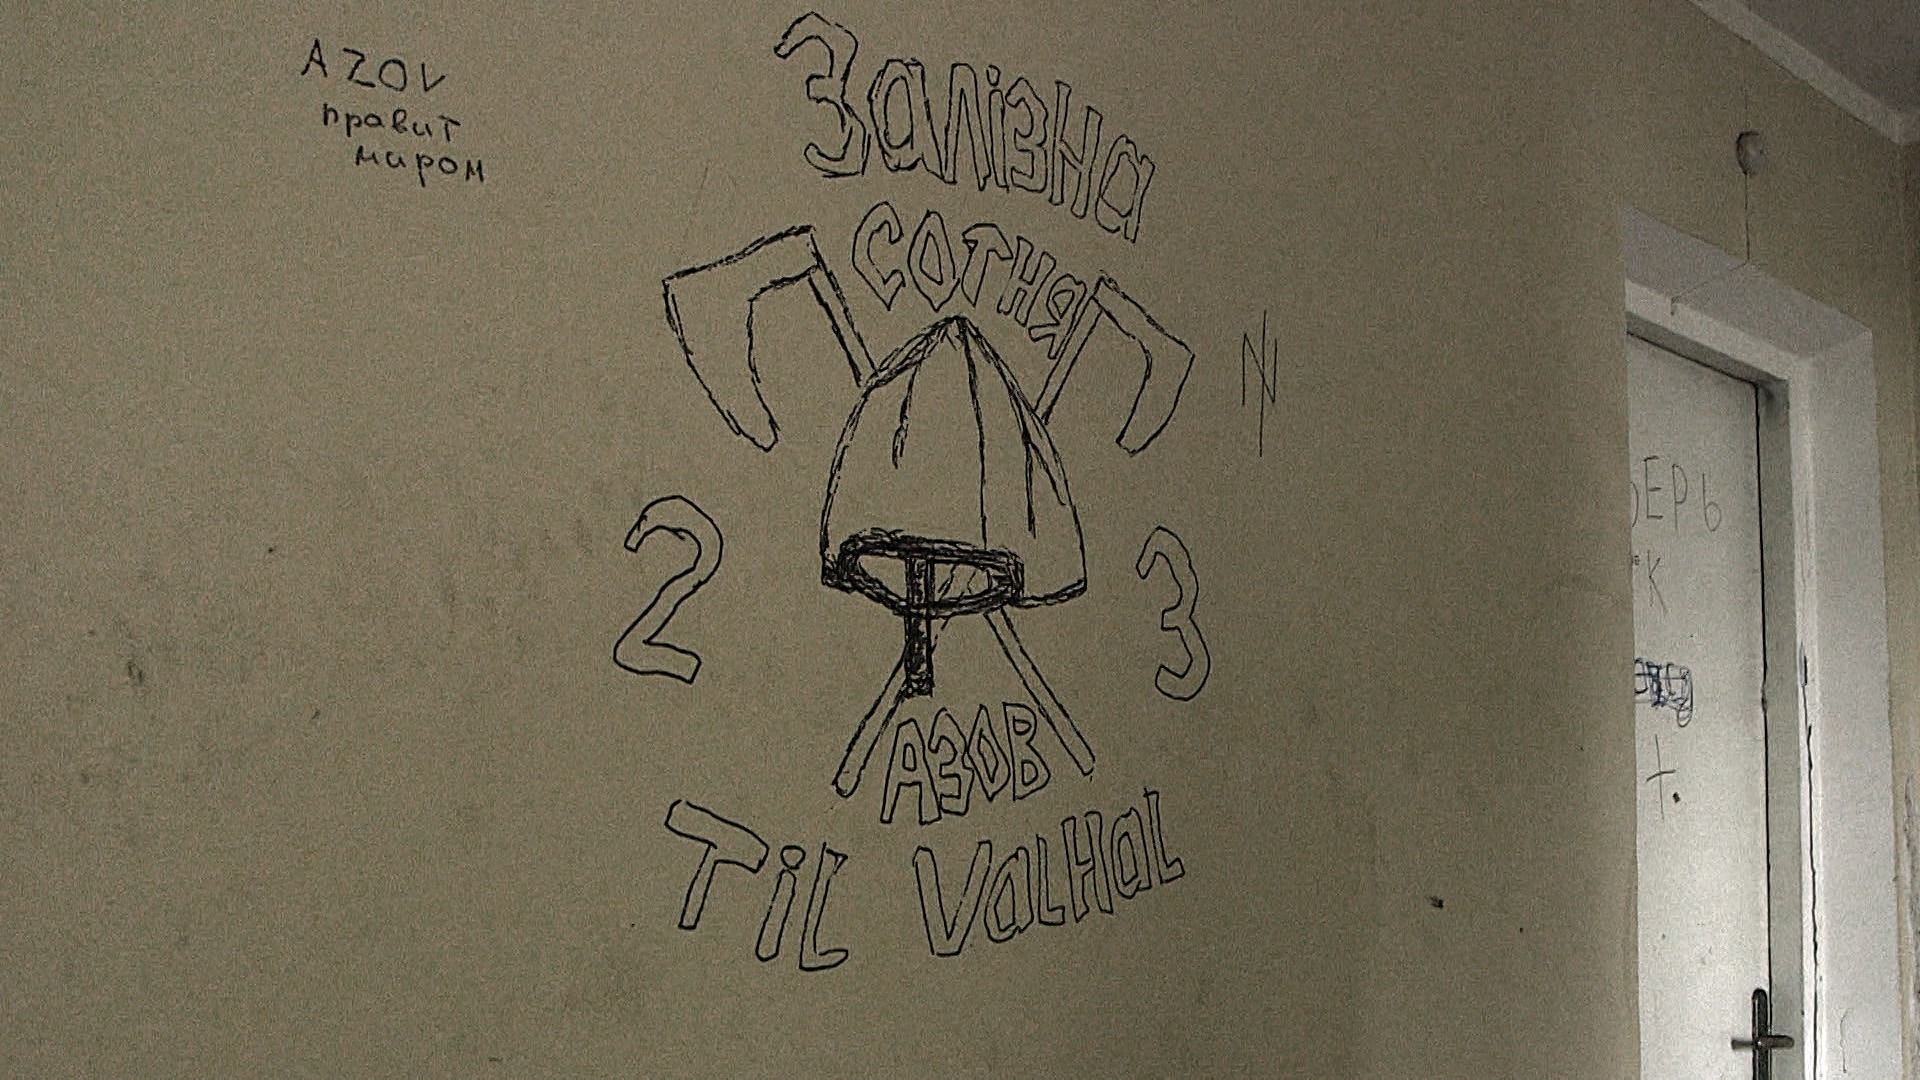 AZOV
правит
миром
Залізна
сотня
2 3
АЗОВ
Til Valhal